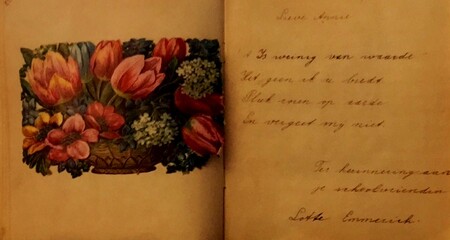 Lieve Annie
't Is weinig van waarde
Het geen ik u biedt
Pluk rozen op aarde
En vergeet mij niet.
Ter herinnering aan
je schoolvriendin
Lotte Emmerik.